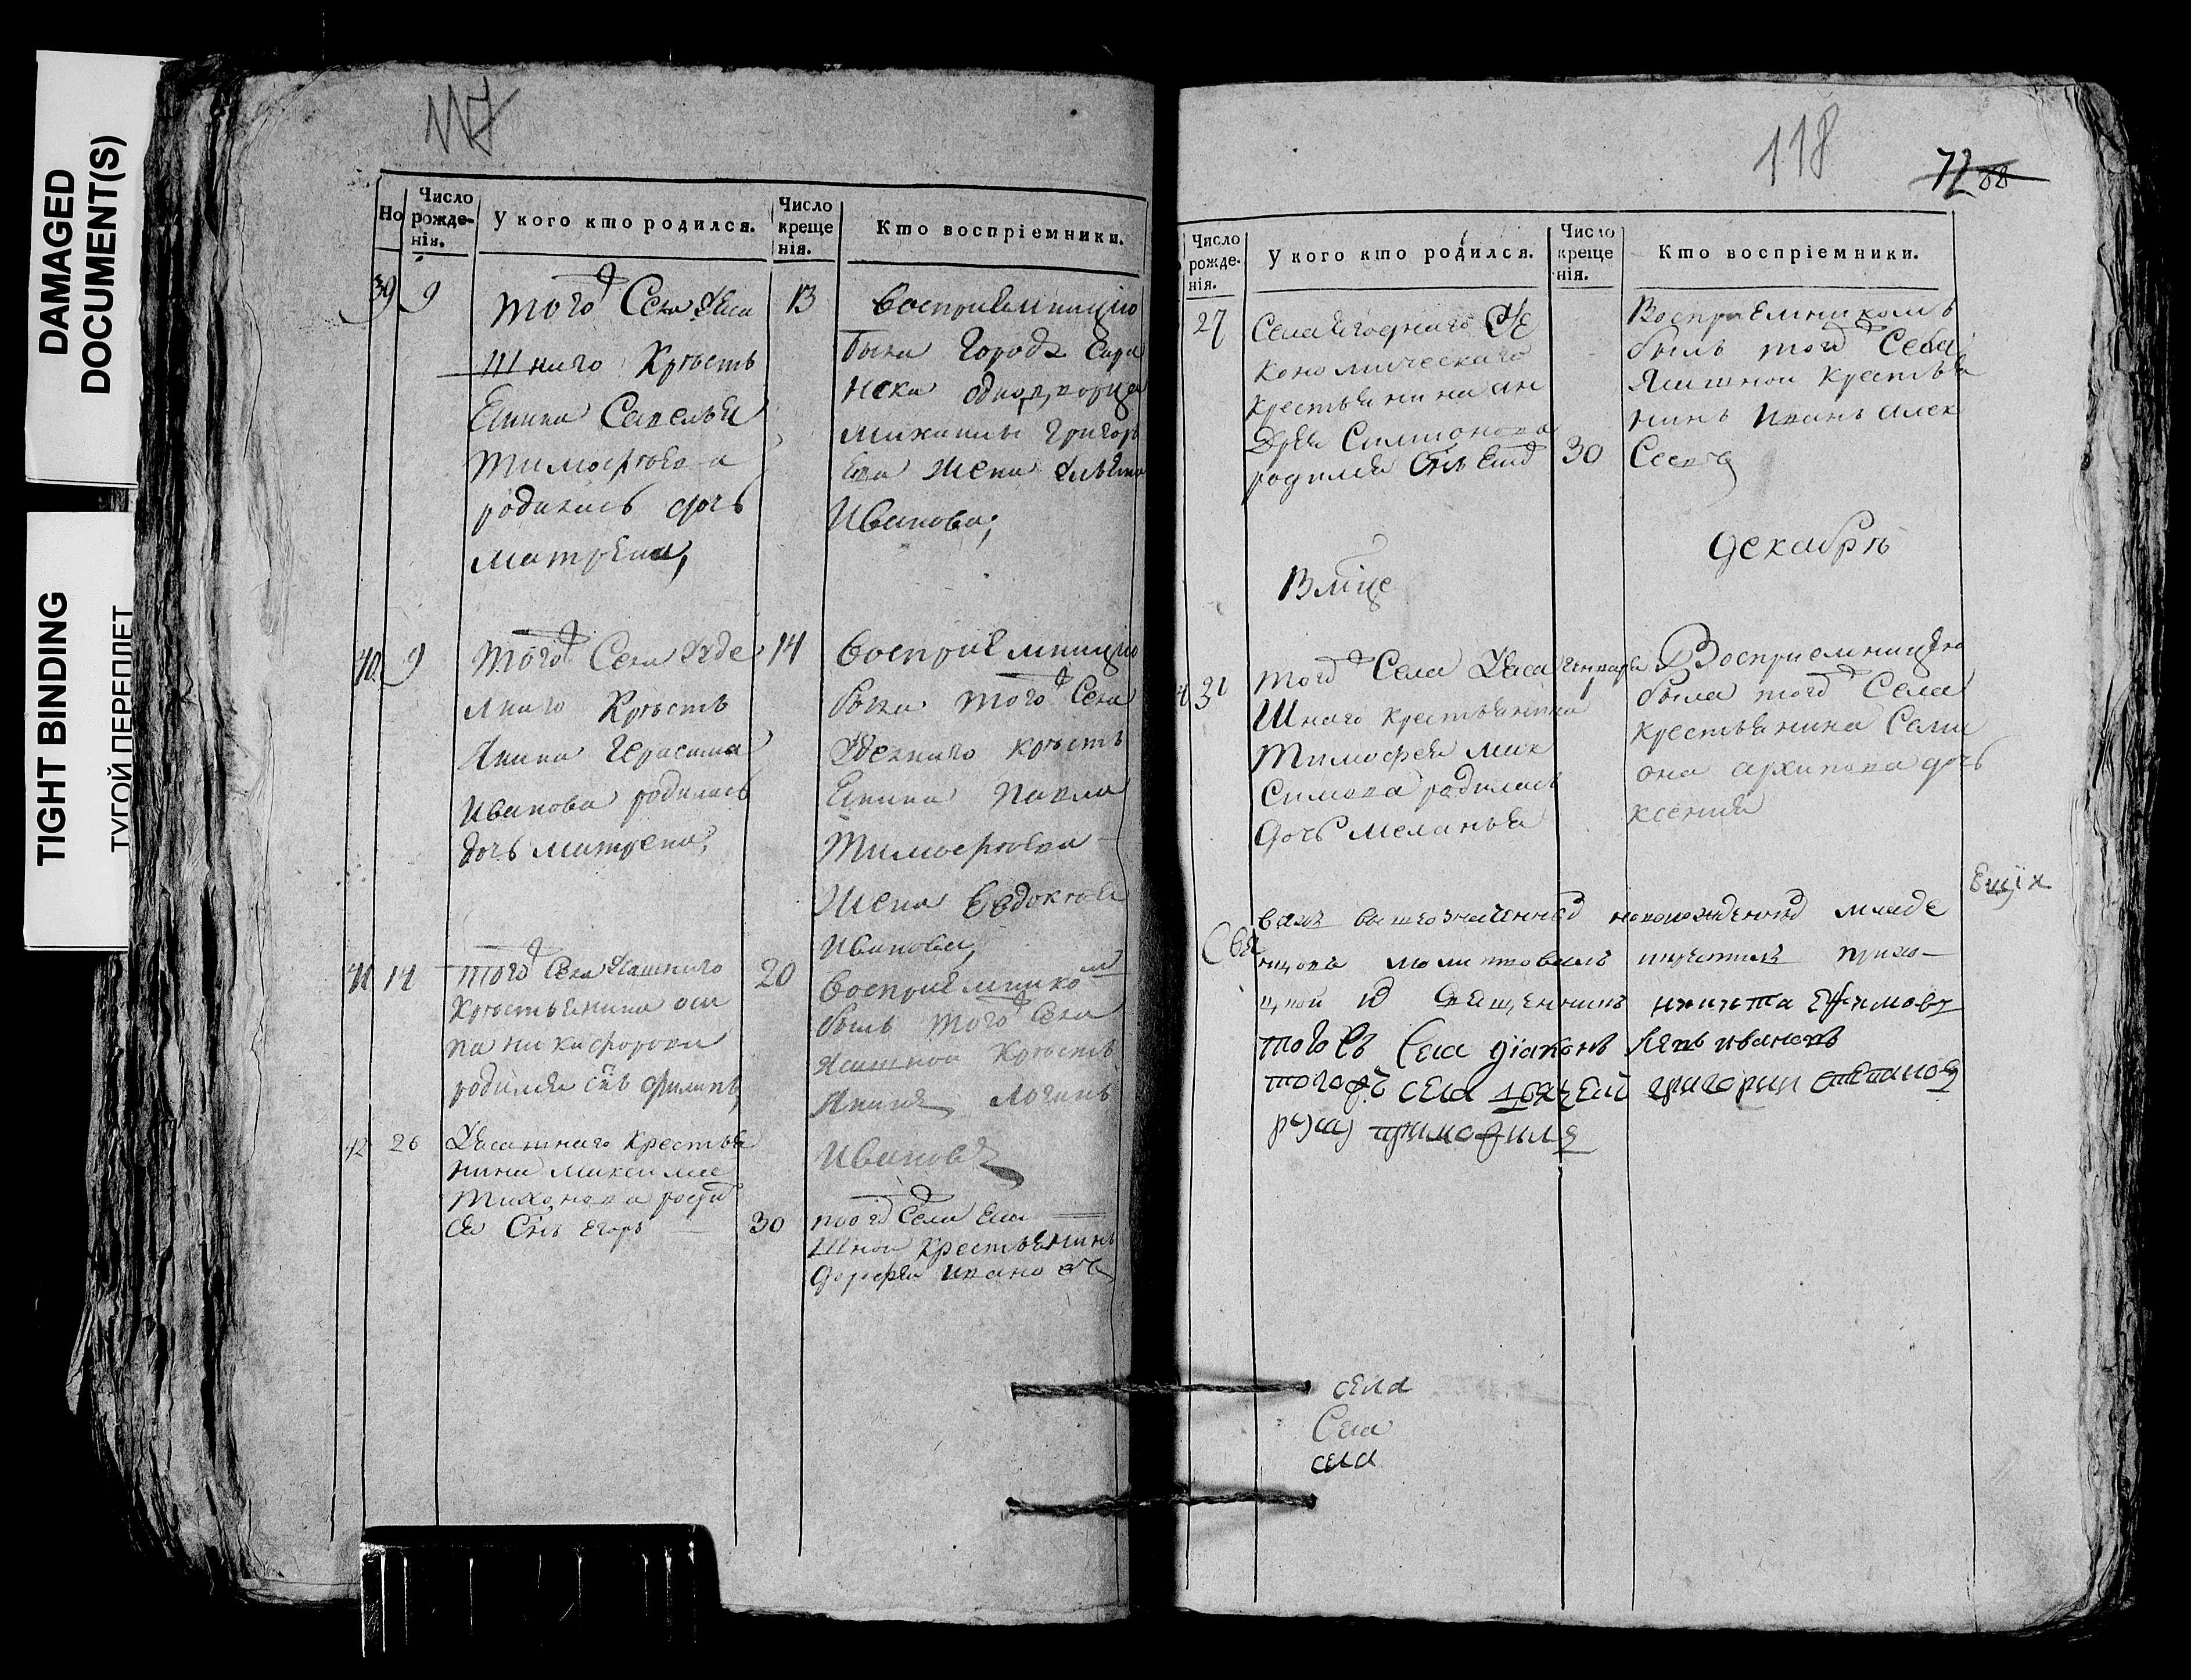 DAMAGED
DOCUMENT(S)
TIGHT BINDING
ТУГОЙ ПЕРЕПЛЕТ
117
Но
Число рожденія.
У кого кто родился.
Число крещенія.
Кто воспріемники.
39 9
того Села
шнаго Кресть
Савелья
Тимофеева
родилась дочь
матрена,
13
восприемницею
была Города Сара
нска однодворца
михаилы григорь
ева жена
Иванова,
40 9
того Села Уде
лнаго Кресть
янина Герасима
Иванова родилась
дочь матрена,
14
восприемницею
была того Села
Уделнаго кресть
янина Павла
Тимофеева
жена Евдокия
Иванова,
41 14
того Села Ясашнаго
Крестьянина оси
па никифорова
родился снъ филипъ
20
восприемником
былъ того Села
Ясашной Кресть
янинъ логинъ
Ивановъ
42 26
Ясашнаго Крестья
нина максима
тихонова роди
ся Снъ Егоръ
30
того Села Еса
шной Крестьянинъ
дорофеи ивановъ
118
72 88
Число рожденія.
У кого кто родился.
Число крещенія.
Кто воспріемники.
27
Села
кономическаго
крестьянина ан
дрея Симионова
родился Снъ
30
Восприемникомъ
былъ того Села
Ясашной Крестья
нинъ иванъ алек
Сеевъ
Вмце
декабрѣ
31
того Села Ясашнаго
крестьянина
тимофея мак
симова родилась
дочь меланья
генваря
Восприемницею
была того Села
крестьянина Сами
она архипова дочь
ксения
всехъ вышеозначенныхъ новорожденныхъ младе
нцовъ молитвовалъ икрестилъ прихо
Священникъ никита Ефимовъ
того Села діаконъ иванъ
того села григорий степановъ
руку приложилъ
села
Села
села